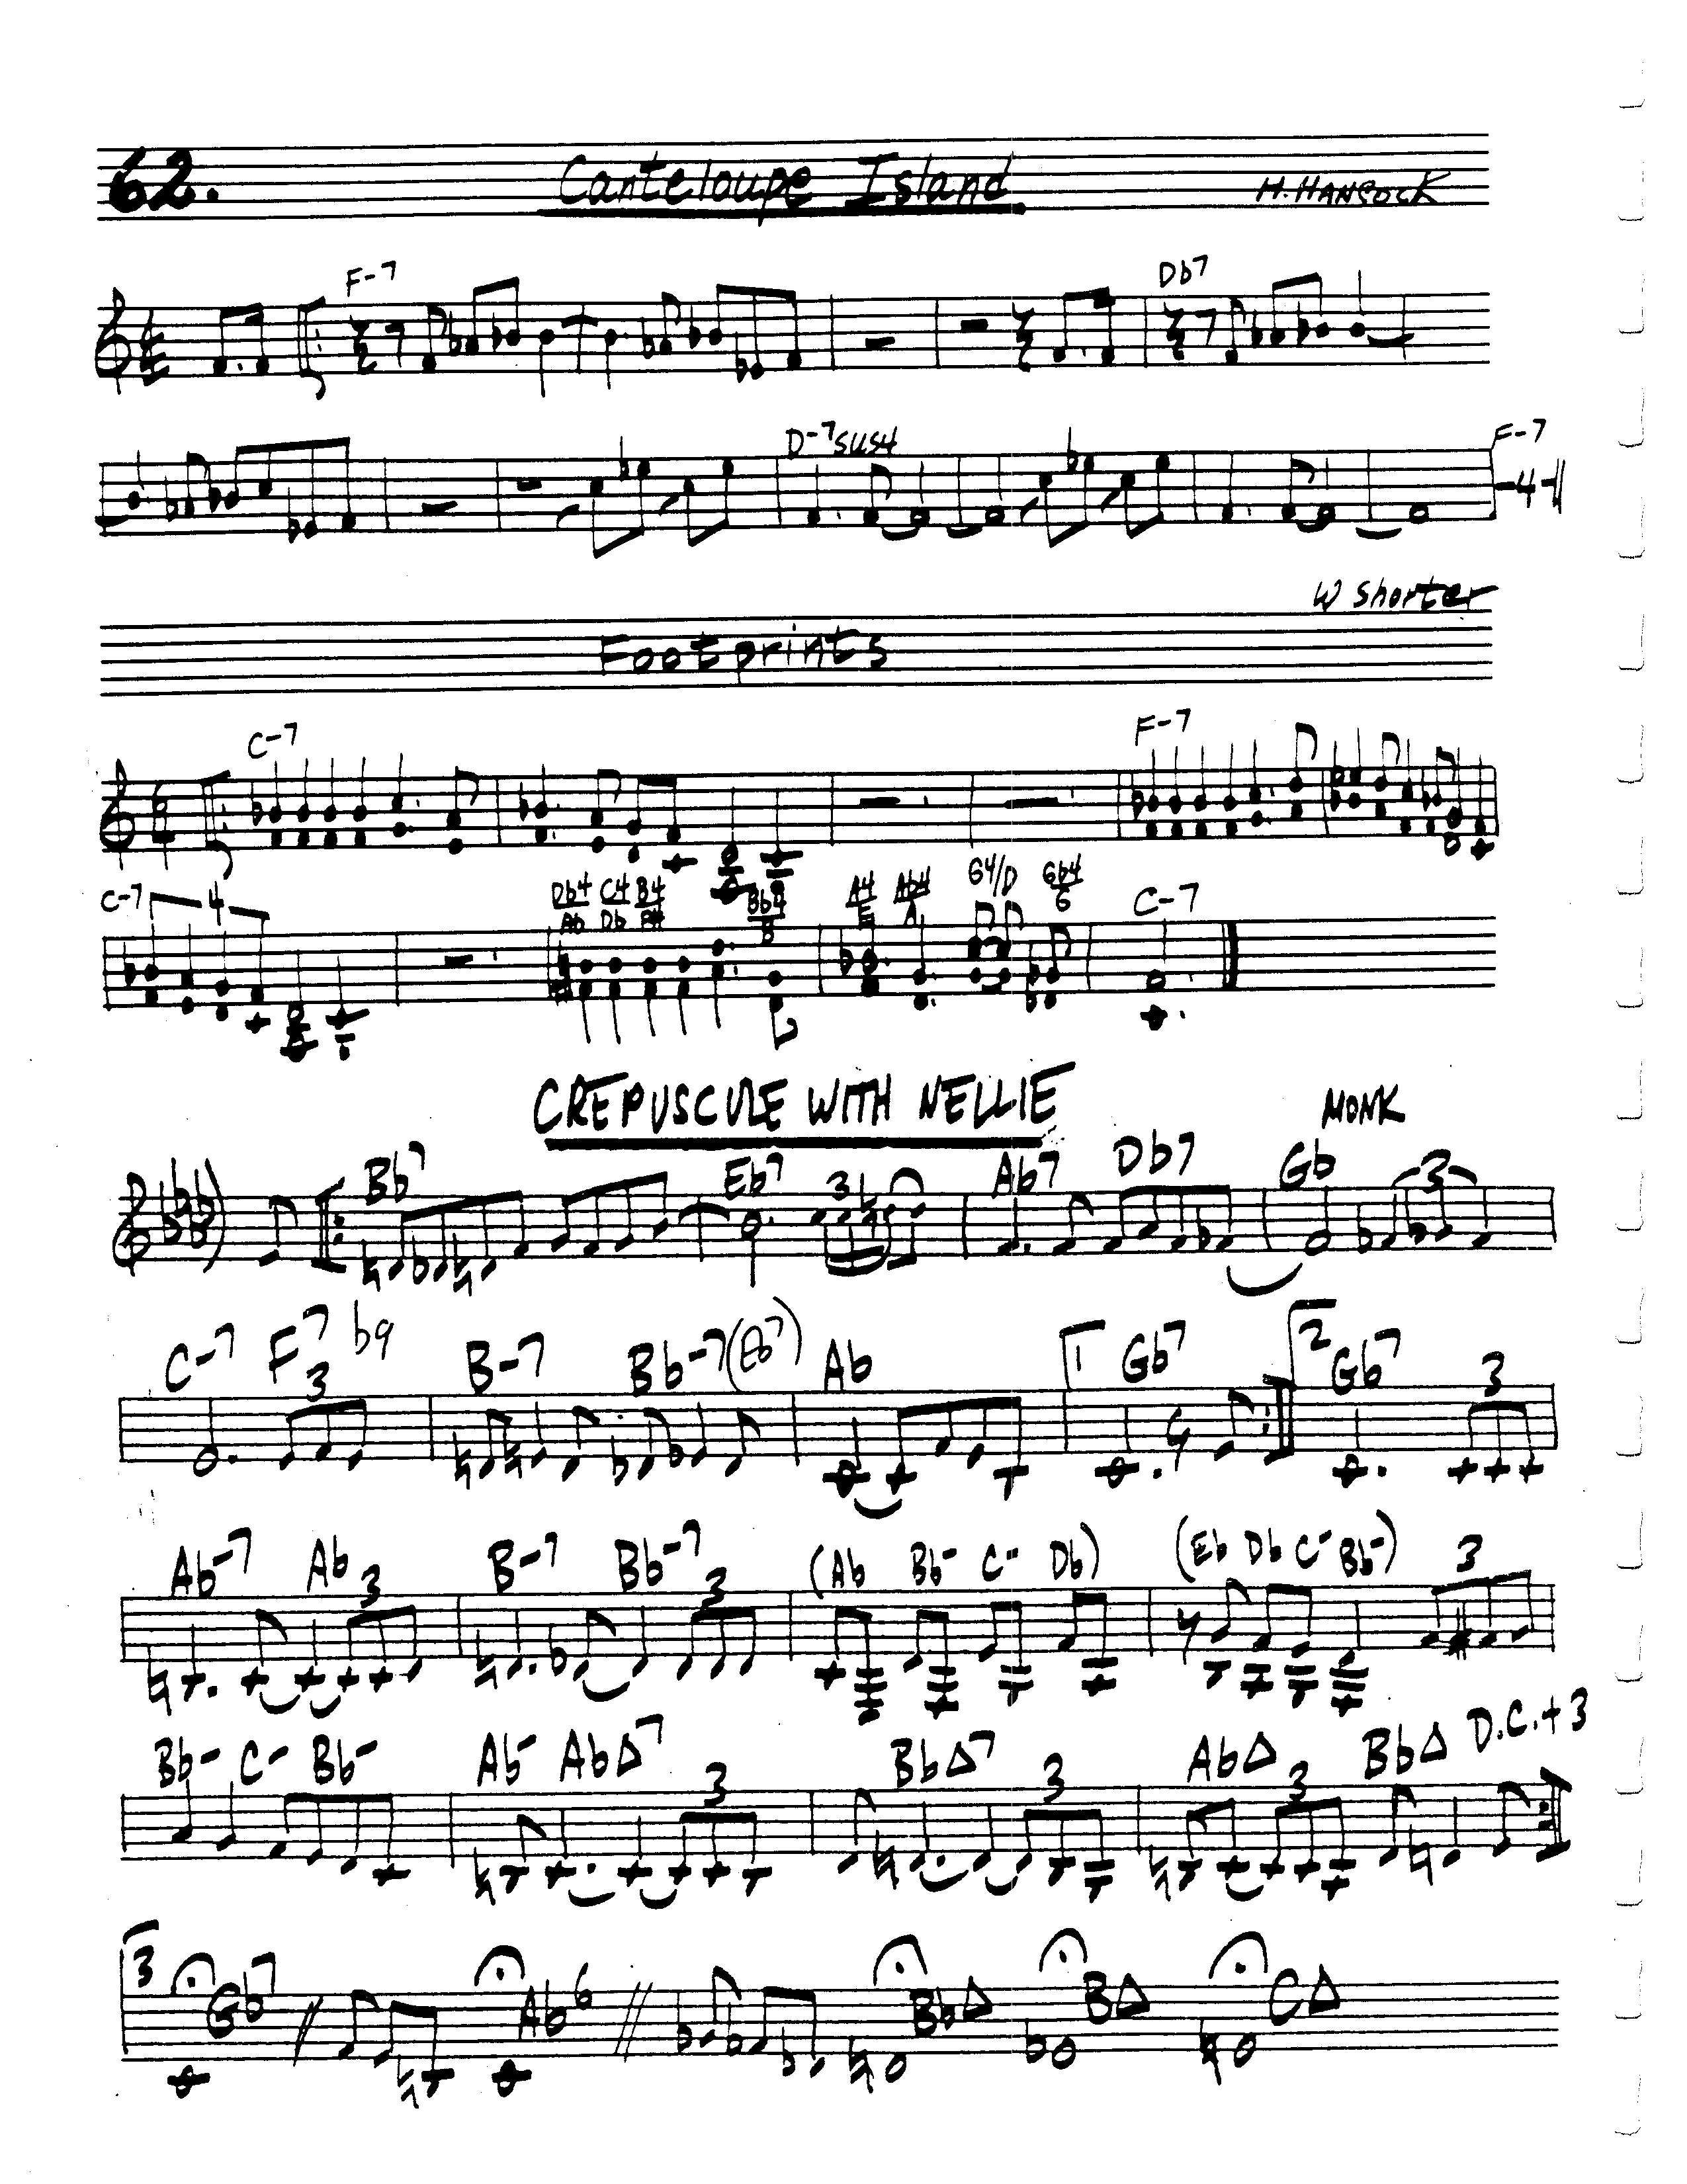 62. Canteloupe Island H. HANCOCK
F-7 Db7
D-7 SUS4 F-7
4
W Shorter
Footprints
C-7 F-7
C-7 4 Db4/Ab C4/Db B4/F# Bb4/B A4/E Ab4/A G4/D Gb4/G C-7
CREPUSCULE WITH NELLIE MONK
Bb7 Eb7 3 Ab7 Db7 Gb 3
C-7 F7 b9 3 B-7 Bb-7 (Eb7) Ab 1 Gb7 2 Gb7 3
Ab-7 Ab 3 B-7 Bb-7 3 (Ab Bb- C- Db) (Eb Db C- Bb-) 3
Bb- C- Bb- Ab- AbΔ7 3 BbΔ7 3 AbΔ 3 BbΔ D.C.+3
3 Gb7 // Ab6 // BbΔ BΔ CΔ